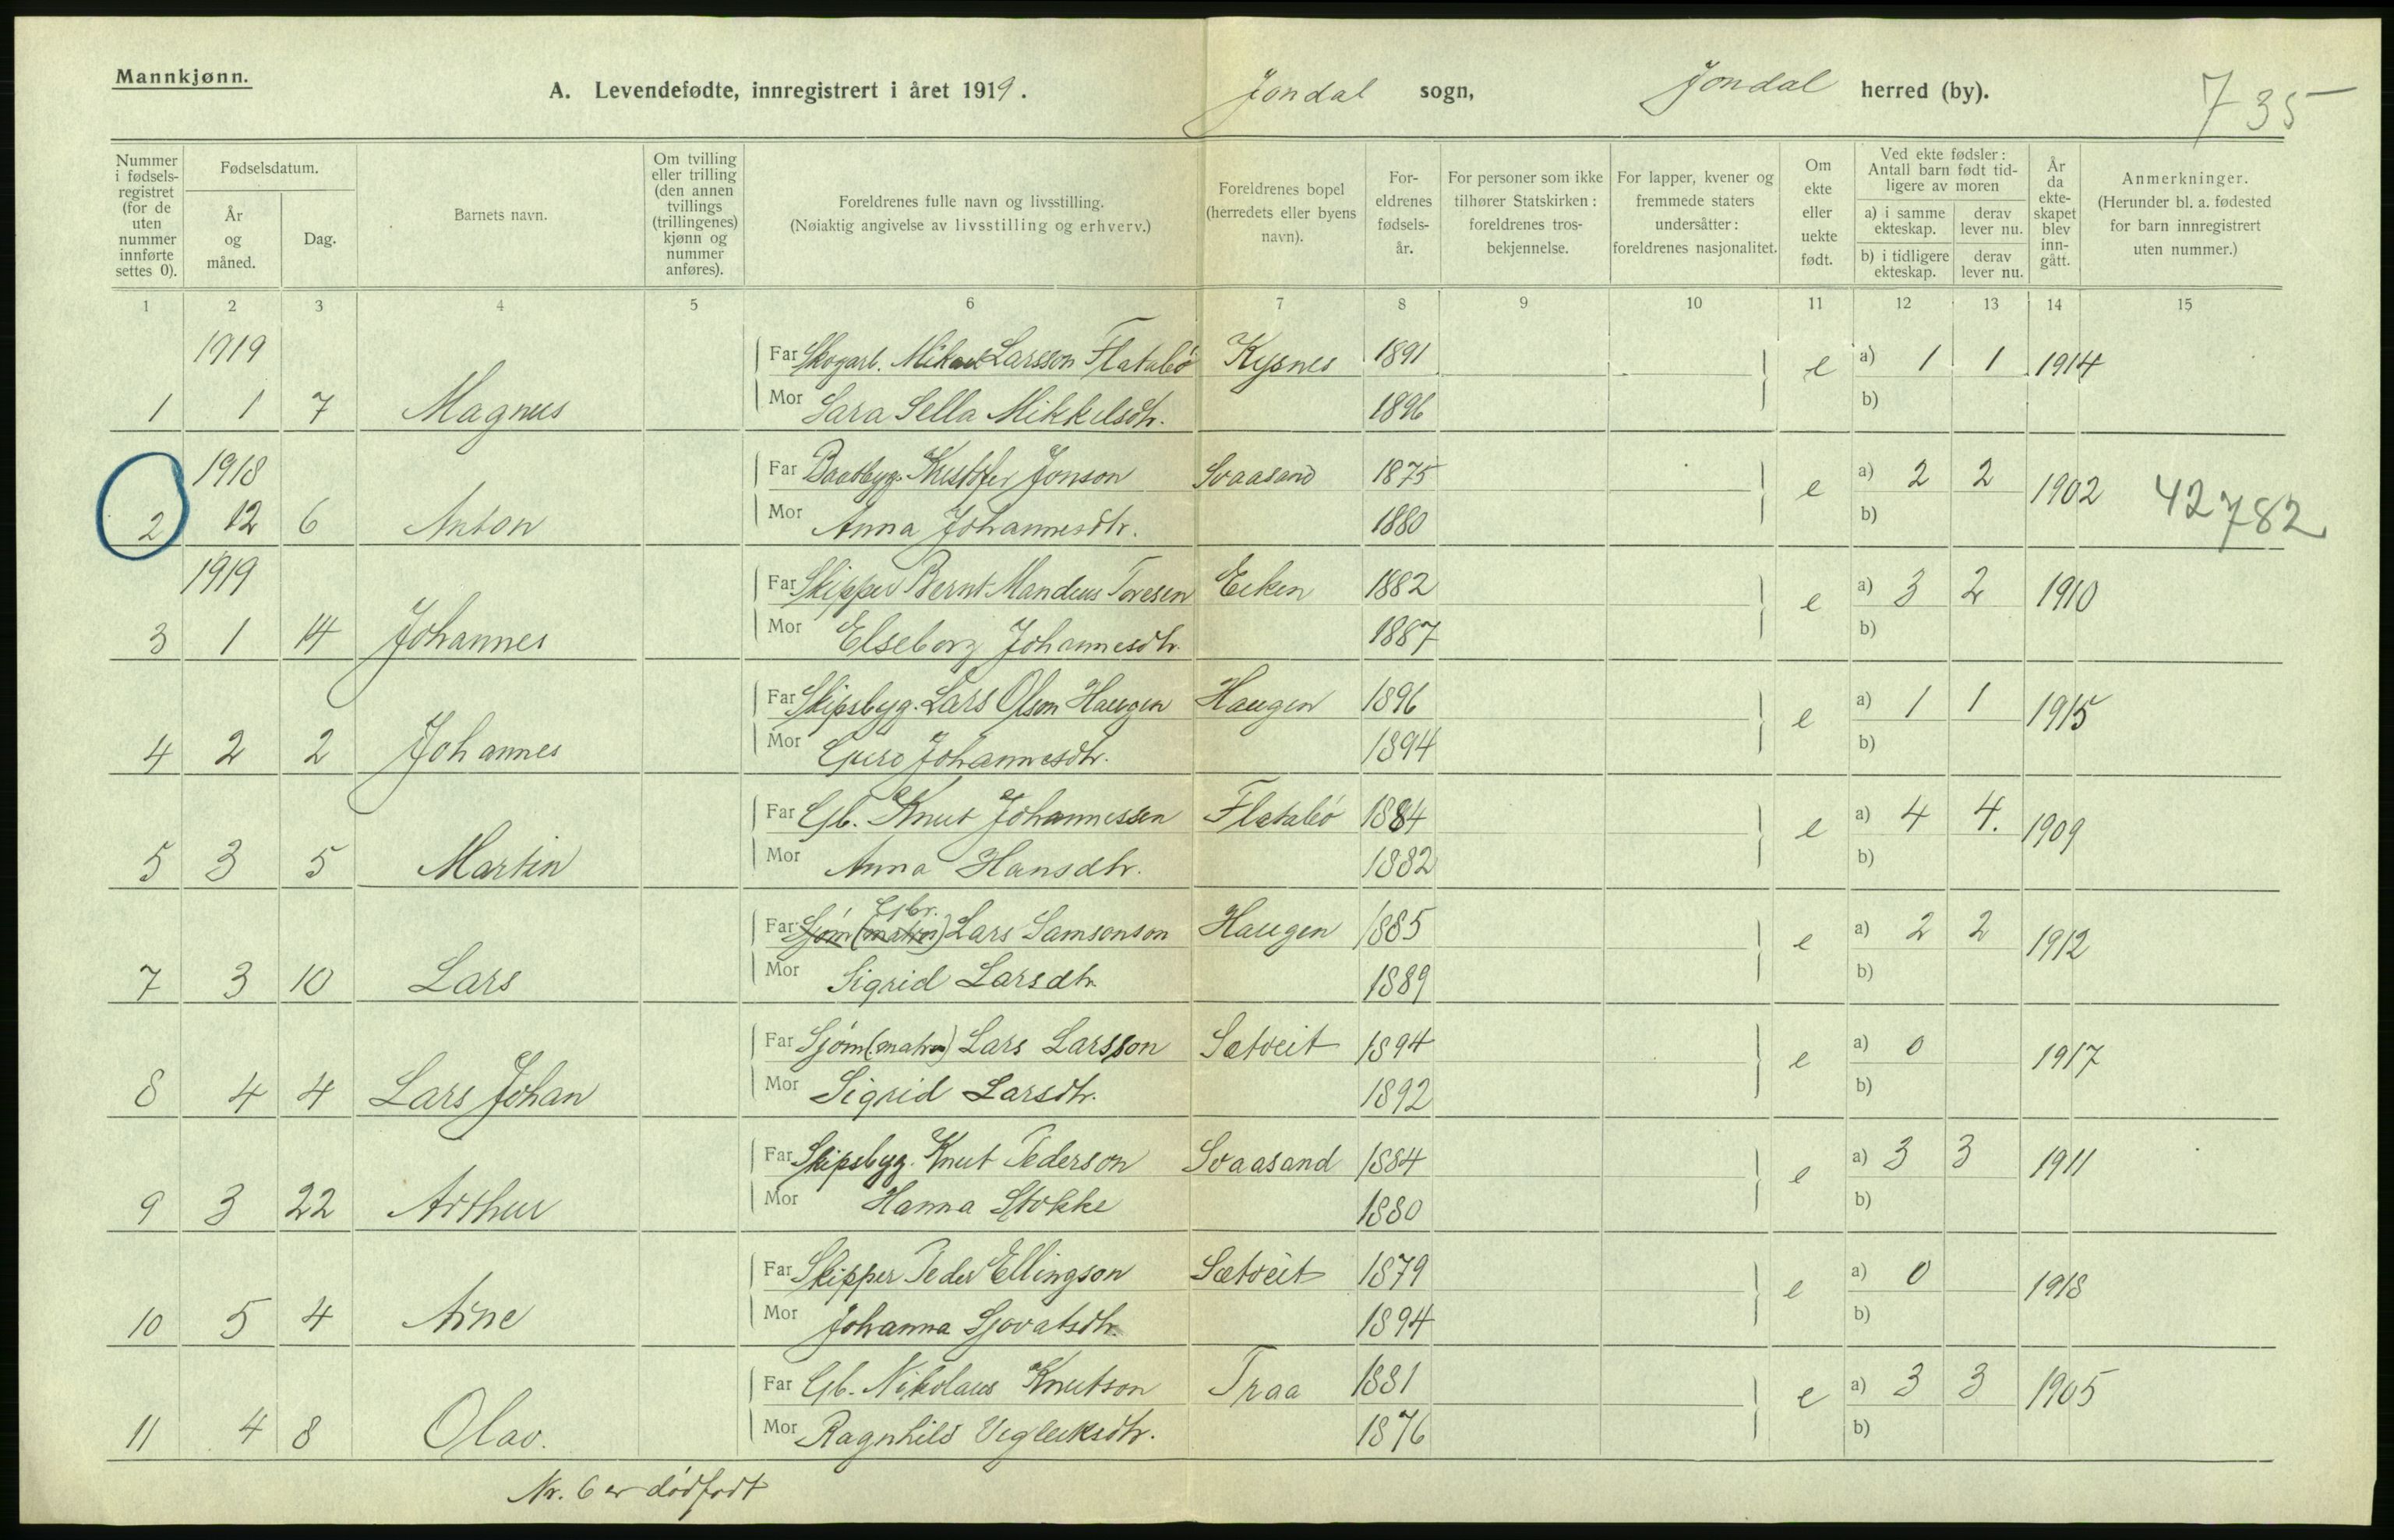 Mannkjønn.
A. Levendefødte, innregistrert i året 1919.
Jondal sogn,
Jondal herred (by).
735
Nummer i fødsels-registret (for de uten nummer innførte settes 0).
Fødselsdatum.
År og måned.
Dag.
Barnets navn.
Om tvilling eller trilling (den annen tvillings (trillingenes) kjønn og nummer anføres).
Foreldrenes fulle navn og livsstilling.
(Nøiaktig angivelse av livsstilling og erhverv.)
Foreldrenes bopel (herredets eller byens navn).
For-eldrenes fødsels-år.
For personer som ikke tilhører Statskirken: foreldrenes tros-bekjennelse.
For lapper, kvener og fremmede staters undersåtter: foreldrenes nasjonalitet.
Om ekte eller uekte født.
Ved ekte fødsler: Antall barn født tid-ligere av moren
a) i samme ekteskap.
derav lever nu.
b) i tidligere ekteskap.
derav lever nu.
År da ekte-skapet blev inn-gått.
Anmerkninger.
(Herunder bl. a. fødested for barn innregistrert uten nummer.)
1 2 3 4 5 6 7 8 9 10 11 12 13 14 15
1919 Far Skogarb. Mikael Larsson Flatabö Kysnes 1891 e a) 1 1 1914
1 1 7 Magnus Mor Sara Sella Mikkelsdtr. 1896 b)
1918 Far Baatbyg. Kristofer Jonson Svaasand 1875 e a) 2 2 1902 42782
2 12 6 Anton Mor Anna Johannesdtr. 1880 b)
1919 Far Skipper Bernt Mandeus Toresen Eiken 1882 e a) 3 2 1910
3 1 14 Johannes Mor Elseborg Johannesdtr. 1887 b)
Far Skipsbyg. Lars Olson Haugen Haugen 1896 e a) 1 1 1915
4 2 2 Johannes Mor Guro Johannesdtr. 1894 b)
Far Gb. Knut Johannessen Flatabö 1884 e a) 4 4. 1909
5 3 5 Martin Mor Anna Hansdtr. 1882 b)
Gbr.
Far Sjöm (matros) Lars Samsonson Haugen 1885 e a) 2 2 1912
7 3 10 Lars Mor Sigrid Larsdtr. 1889 b)
Far Sjöm (matros) Lars Larsson Sætveit 1894 e a) 0 1917
8 4 4 Lars Johan Mor Sigrid Larsdtr. 1892 b)
Far Skipsbyg. Knut Pederson Svaasand 1884 e a) 3 3 1911
9 3 22 Arthur Mor Hanna Stokke 1880 b)
Far Skipper Peder Ellingson Sætveit 1879 e a) 0 1918
10 5 4 Arne Mor Johanna Sjovatsdtr. 1894 b)
Far Gb. Nikolaus Knutson Traa 1881 e a) 3 3 1905
11 4 8 Olav. Mor Ragnhild Vigleiksdtr. 1876 b)
Nr. 6 er dödfödt